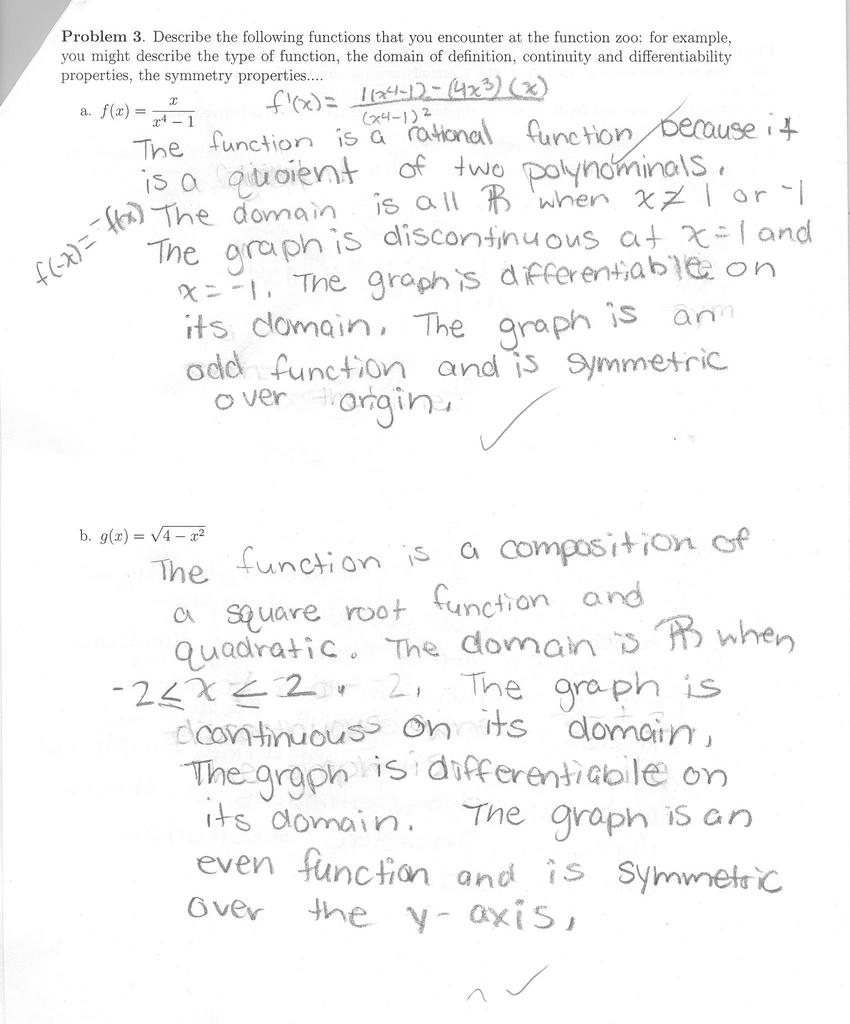 Problem 3. Describe the following functions that you encounter at the function zoo: for example,
you might describe the type of function, the domain of definition, continuity and differentiability
properties, the symmetry properties....
a. f(x) = x / (x⁴ − 1)   f'(x) = 1(x⁴-1) - (4x³)(x) / (x⁴-1)²
The function is a rational function because it
is a quoient of two polynominals.
f(-x) = -f(x) The domain is all ℝ when x ≠ 1 or -1
The graph is discontinuous at x = 1 and
x = -1. The graph is differentiabile on
its domain. The graph is an
odd function and is symmetric
over origin.
b. g(x) = √(4 − x²)
The function is a composition of
a square root function and
quadratic. The domain is ℝ when
-2 ≤ x ≤ 2. The graph is
continuous on its domain.
The graph is differentiabile on
its domain. The graph is an
even function and is symmetric
over the y-axis.